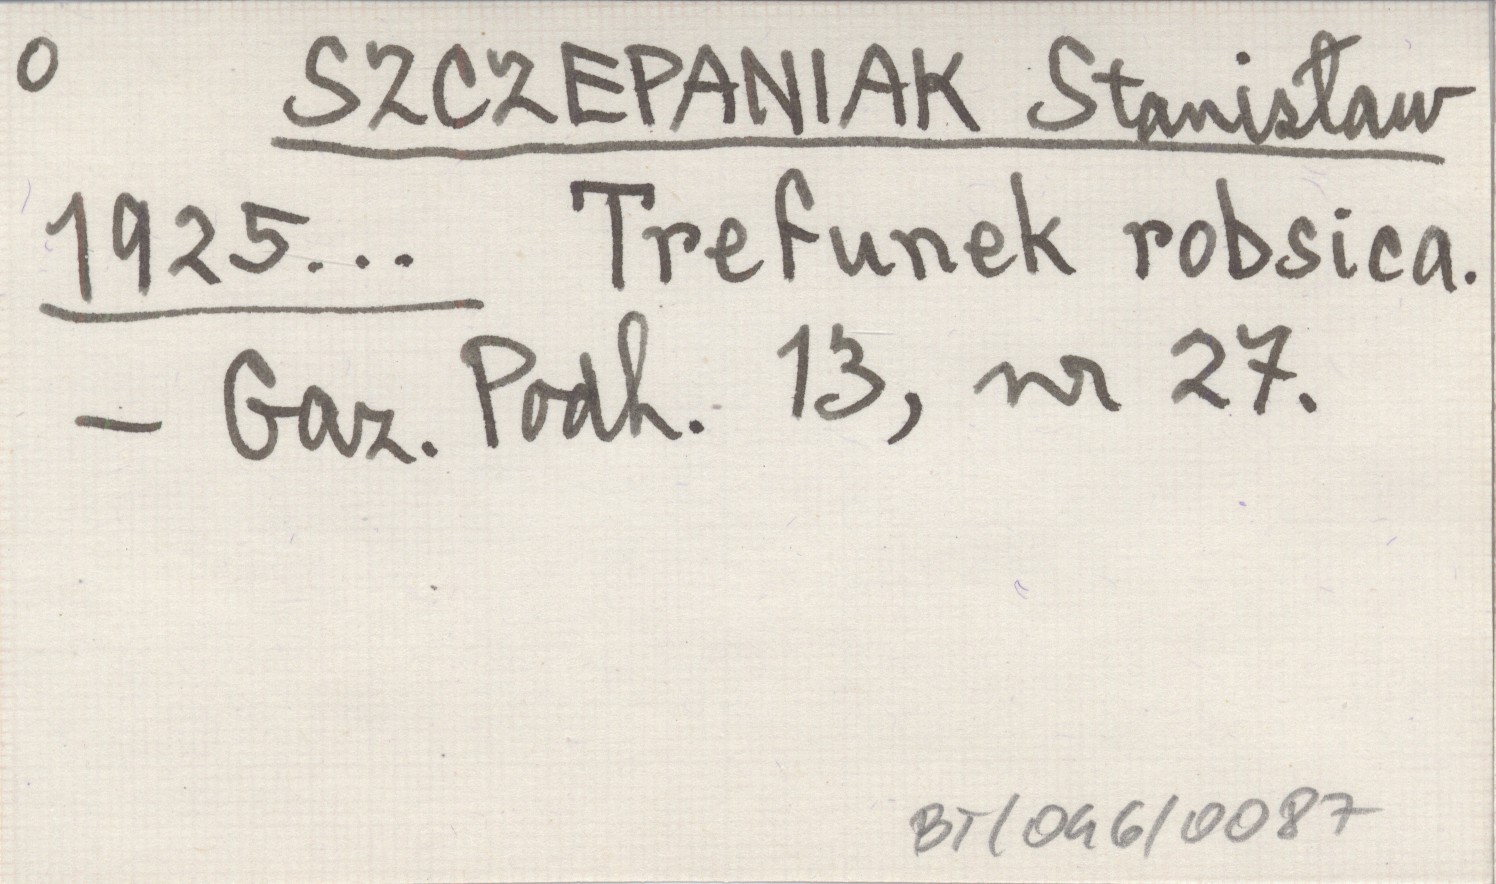 O SZCZEPANIAK Stanisław
1925... Trefunek robsica.
– Gaz. Podh. 13, nr 27.
BT/046/0087